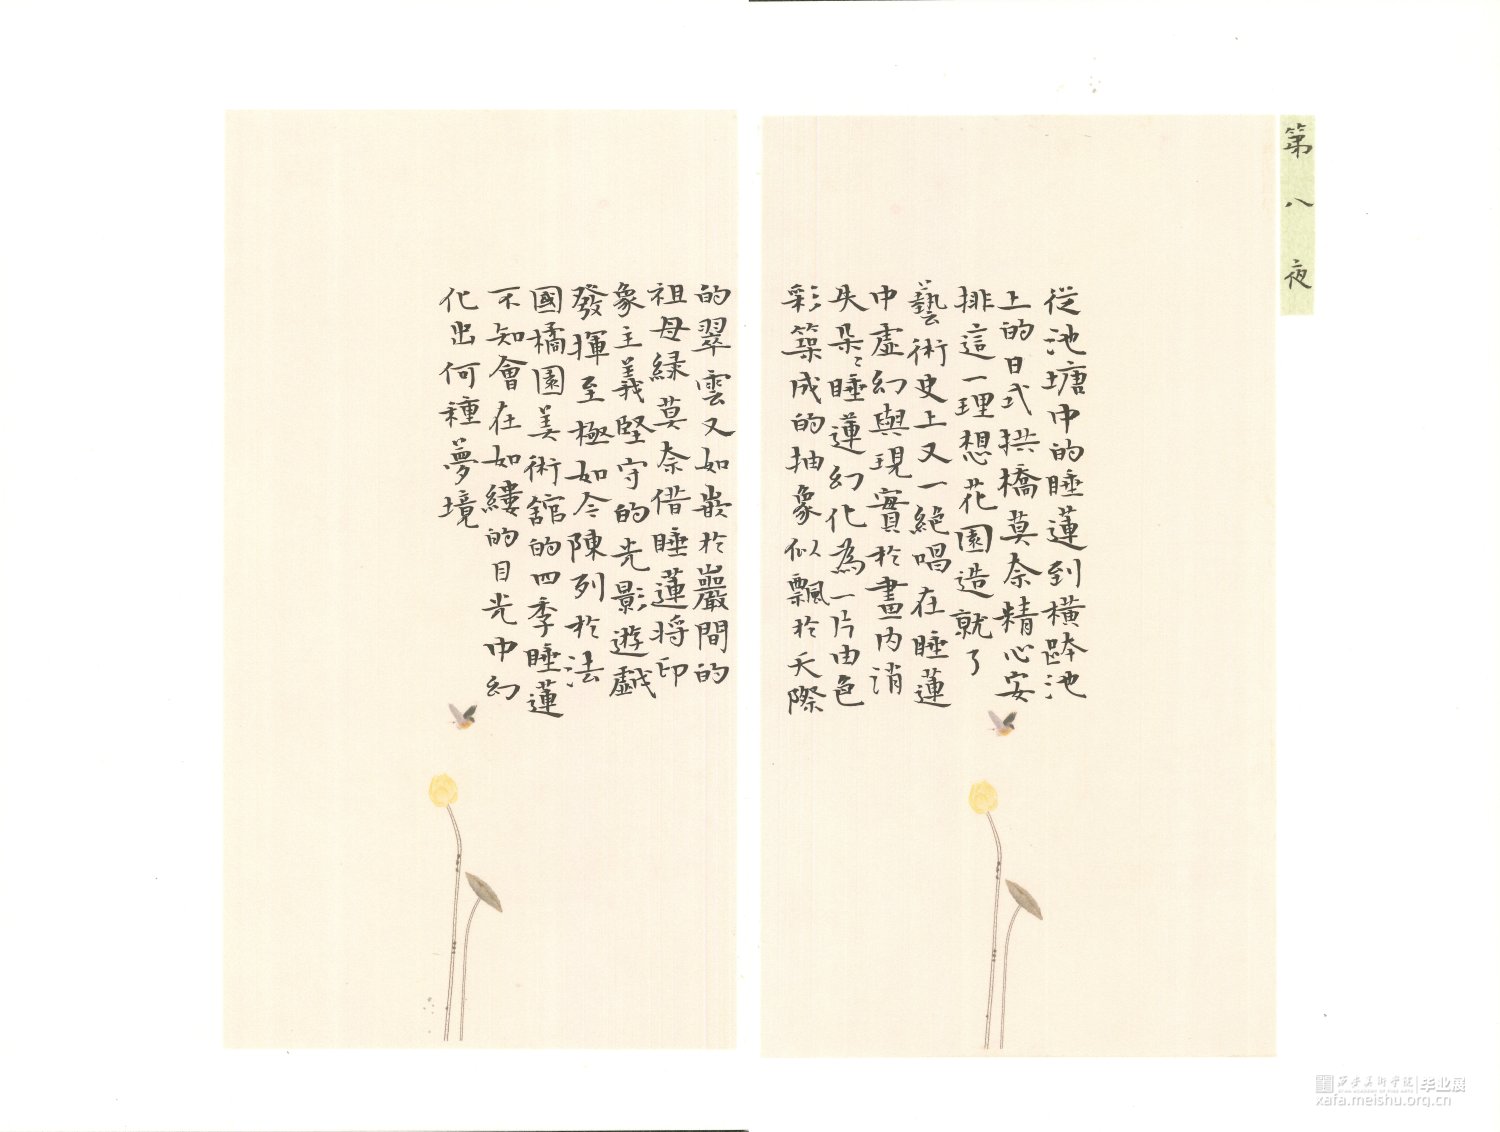 第八夜
從池塘中的睡蓮到橫跨池
上的日式拱橋莫奈精心安
排這一理想花園造就了
藝術史上又一絕唱在睡蓮
中虛幻與現實於畫內消
失朵〻睡蓮幻化為一片由色
彩築成的抽象似飄於天際
的翠雲又如嵌於巖間的
祖母綠莫奈借睡蓮將印
象主義堅守的光影遊戲
發揮至極如今陳列於法
國橘園美術館的四季睡蓮
不知會在如縷的目光中幻
化出何種夢境
西安美術學院 毕业展
xafa.meishu.org.cn